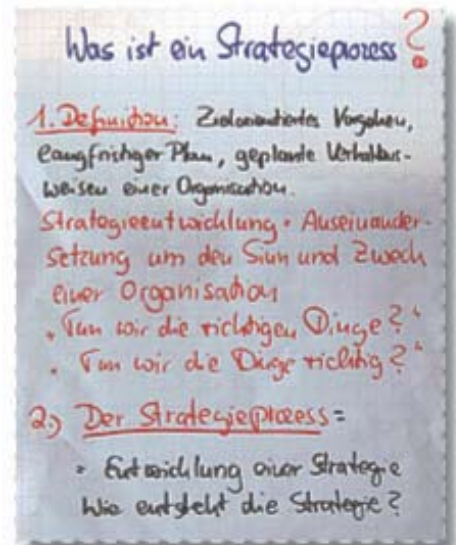 Was ist ein Strategieprozess?
1. Definition: Zielorientiertes Vorgehen,
langfristiger Plan, geplante Verhaltens-
weisen einer Organisation.
Strategieentwicklung = Auseinander-
setzung um den Sinn und Zweck
einer Organisation
"Tun wir die richtigen Dinge?"
"Tun wir die Dinge richtig?"
2.) Der Strategieprozess =
= Entwicklung einer Strategie
Wie entsteht die Strategie?